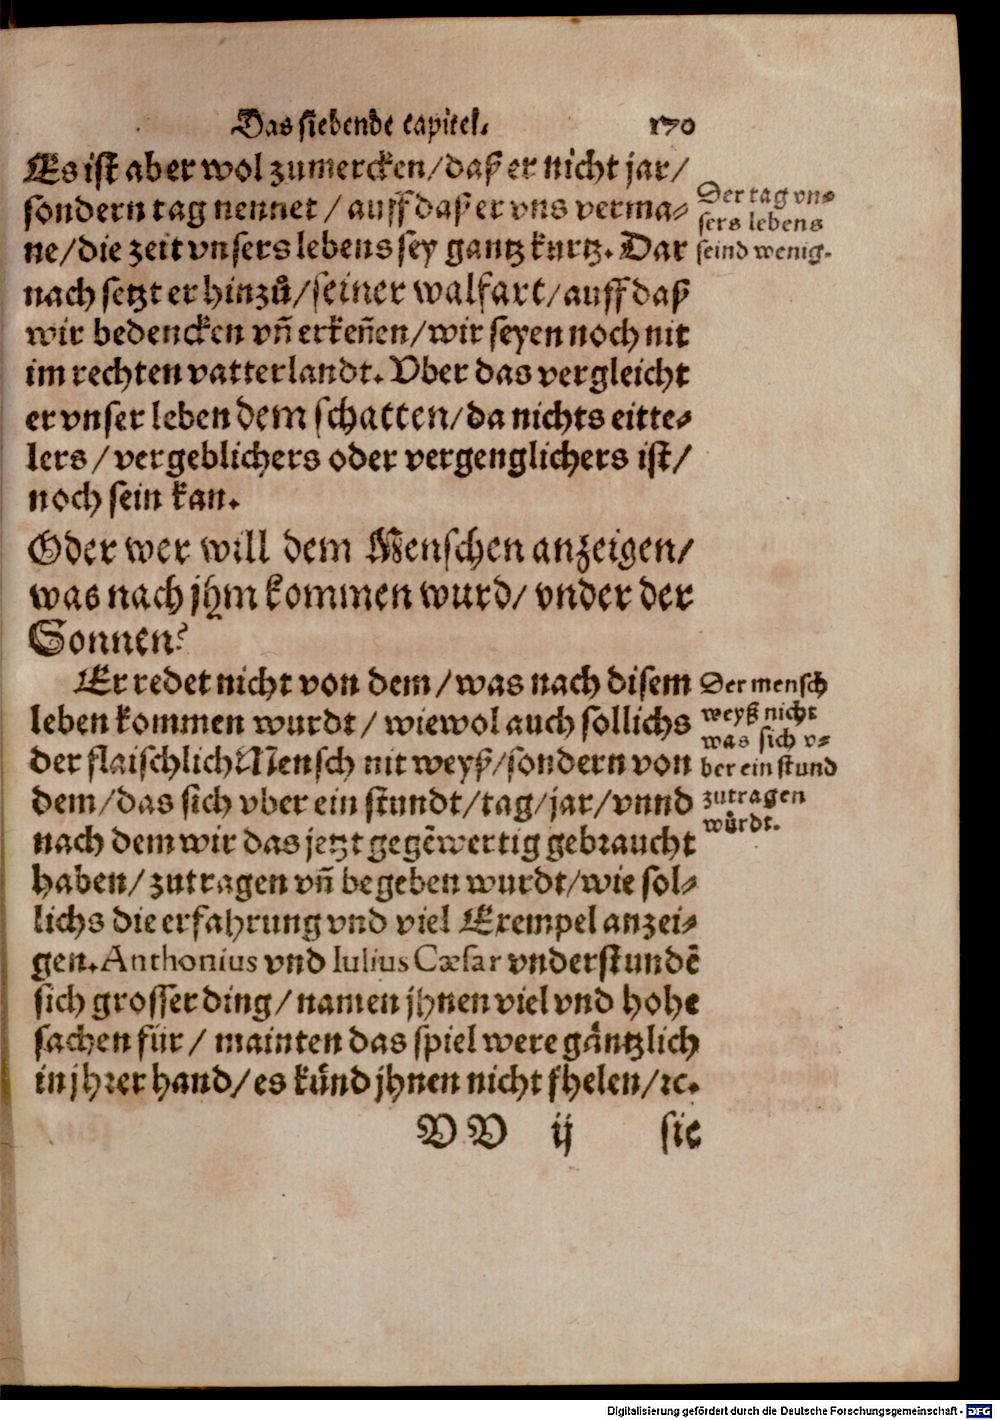 Das siebende capitel. 170
Es ist aber wol zumercken/daß er nicht jar/
sondern tag nennet / auff daß er vns verma-
ne/die zeit vnsers lebens sey gantz kurtz. Dar
nach setzt er hinzů/seiner walfart/auff daß
wir bedencken vñ erkeñen/wir seyen noch nit
im rechten vatterlandt. Vber das vergleicht
er vnser leben dem schatten/da nichts eitte-
lers/vergeblichers oder vergenglichers ist/
noch sein kan.
Der tag vn-
sers lebens
seind wenig.
Oder wer will dem Menschen anzeigen/
was nach jhm kommen wurd/ vnder der
Sonnen?
Er redet nicht von dem/was nach disem
leben kommen wurdt/ wiewol auch sollichs
der flaischlich Mensch nit weyß/sondern von
dem/das sich vber ein stundt/tag/jar/vnnd
nach dem wir das jetzt gegẽwertig gebraucht
haben/zutragen vñ begeben wurdt/wie sol-
lichs die erfahrung vnd viel Exempel anzei-
gen. Anthonius vnd Iulius Cæsar vnderstundẽ
sich grosser ding/namen jhnen viel vnd hohe
sachen für/ mainten das spiel were gäntzlich
in jhrer hand/es künd jhnen nicht fhelen/ꝛc.
Der mensch
weyß nicht
was sich v-
ber ein stund
zutragen
würdt.
VV ij sie
Digitalisierung gefördert durch die Deutsche Forschungsgemeinschaft - DFG